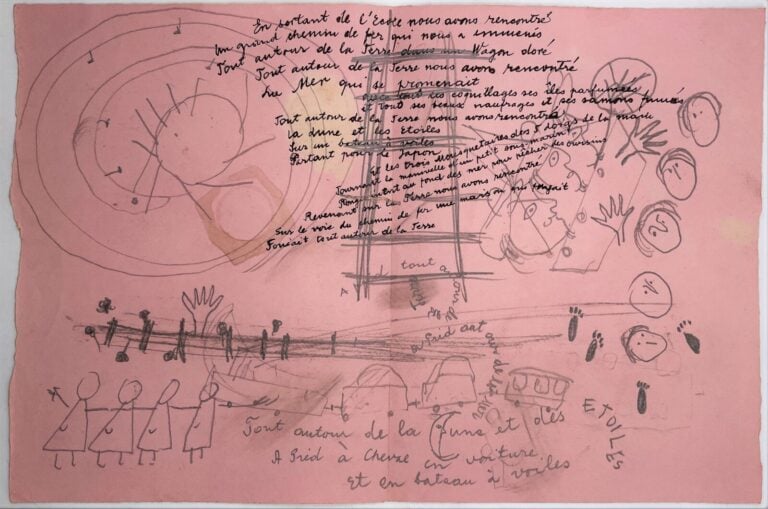 En sortant de l'Ecole nous avons rencontré
Un grand chemin de fer qui nous a emmenés
Tout autour de la Terre dans un Wagon doré
Tout autour de la Terre nous avons rencontré
La Mer qui se promenait
avec tous ces coquillages ses îles parfumées
et tout ses beaux naufrages et ses samons fumés
Tout autour de la Terre nous avons rencontré
la Lune et les Etoiles
Sur un bateau à voiles
Partant pour le Japon
Et les trois Mousquetaires des 5 doigts de la main
Tournant la manivelle d'un petit sous marin
Plongeant au fond des mer pour pêcher des oursins
Revenant sur la Terre nous avons rencontré
Sur la voie du chemin de fer une maison qui fuyait
Fuyait tout autour de la Terre
tout autour de
Tout autour de la Lune et des
ETOILES
A Pied à Cheval en voiture
Et en bateau à voiles